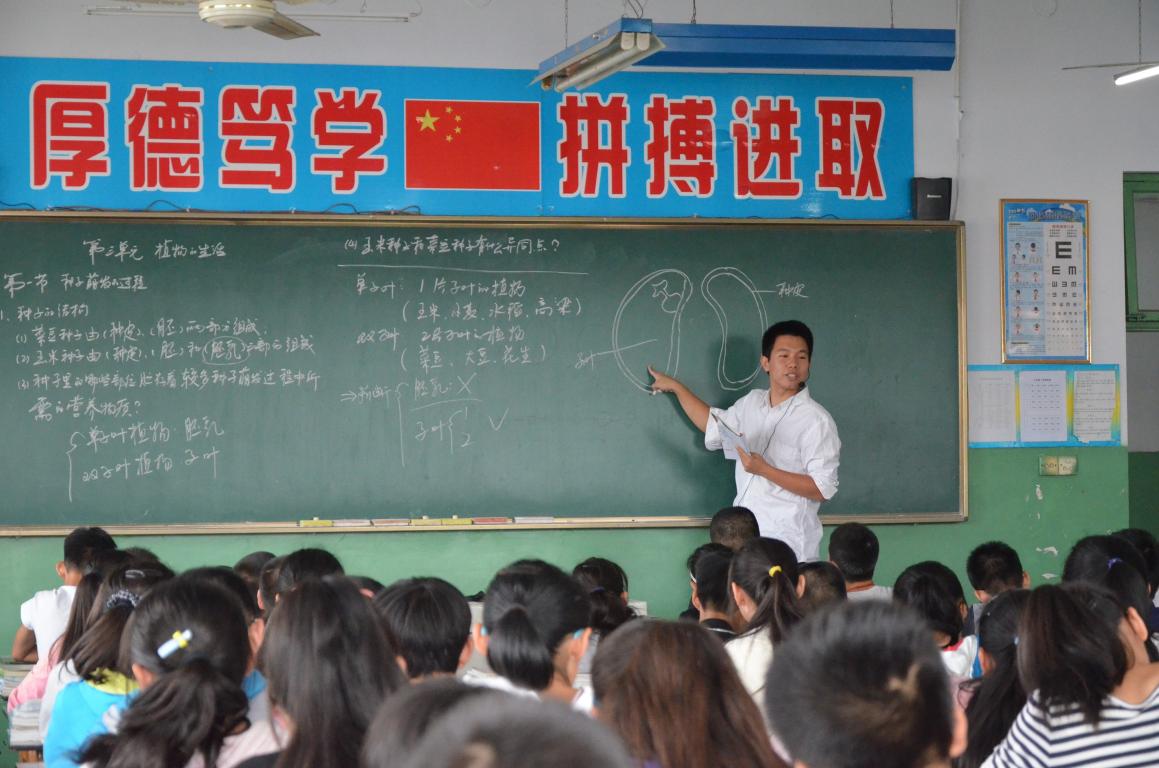 厚德笃学 拼搏进取
第三单元 植物的生活
第一节 种子萌发的过程
1、种子的结构
(1) 菜豆种子由(种皮)、(胚)两部分组成
(2) 玉米种子由(种皮)、(胚)和(胚乳)三部分组成
(3) 种子里的哪些部位贮存着较多种子萌发过程中所
需的营养物质?
单子叶植物:胚乳
双子叶植物 子叶
(4) 玉米种子和菜豆种子有什么异同点?
单子叶: 1片子叶的植物
(玉米、小麦、水稻、高梁)
双子叶 2片子叶的植物
(菜豆、大豆、花生)
⇒判断
胚乳: X
子叶 { 1 2 ✓
子叶
种皮
E